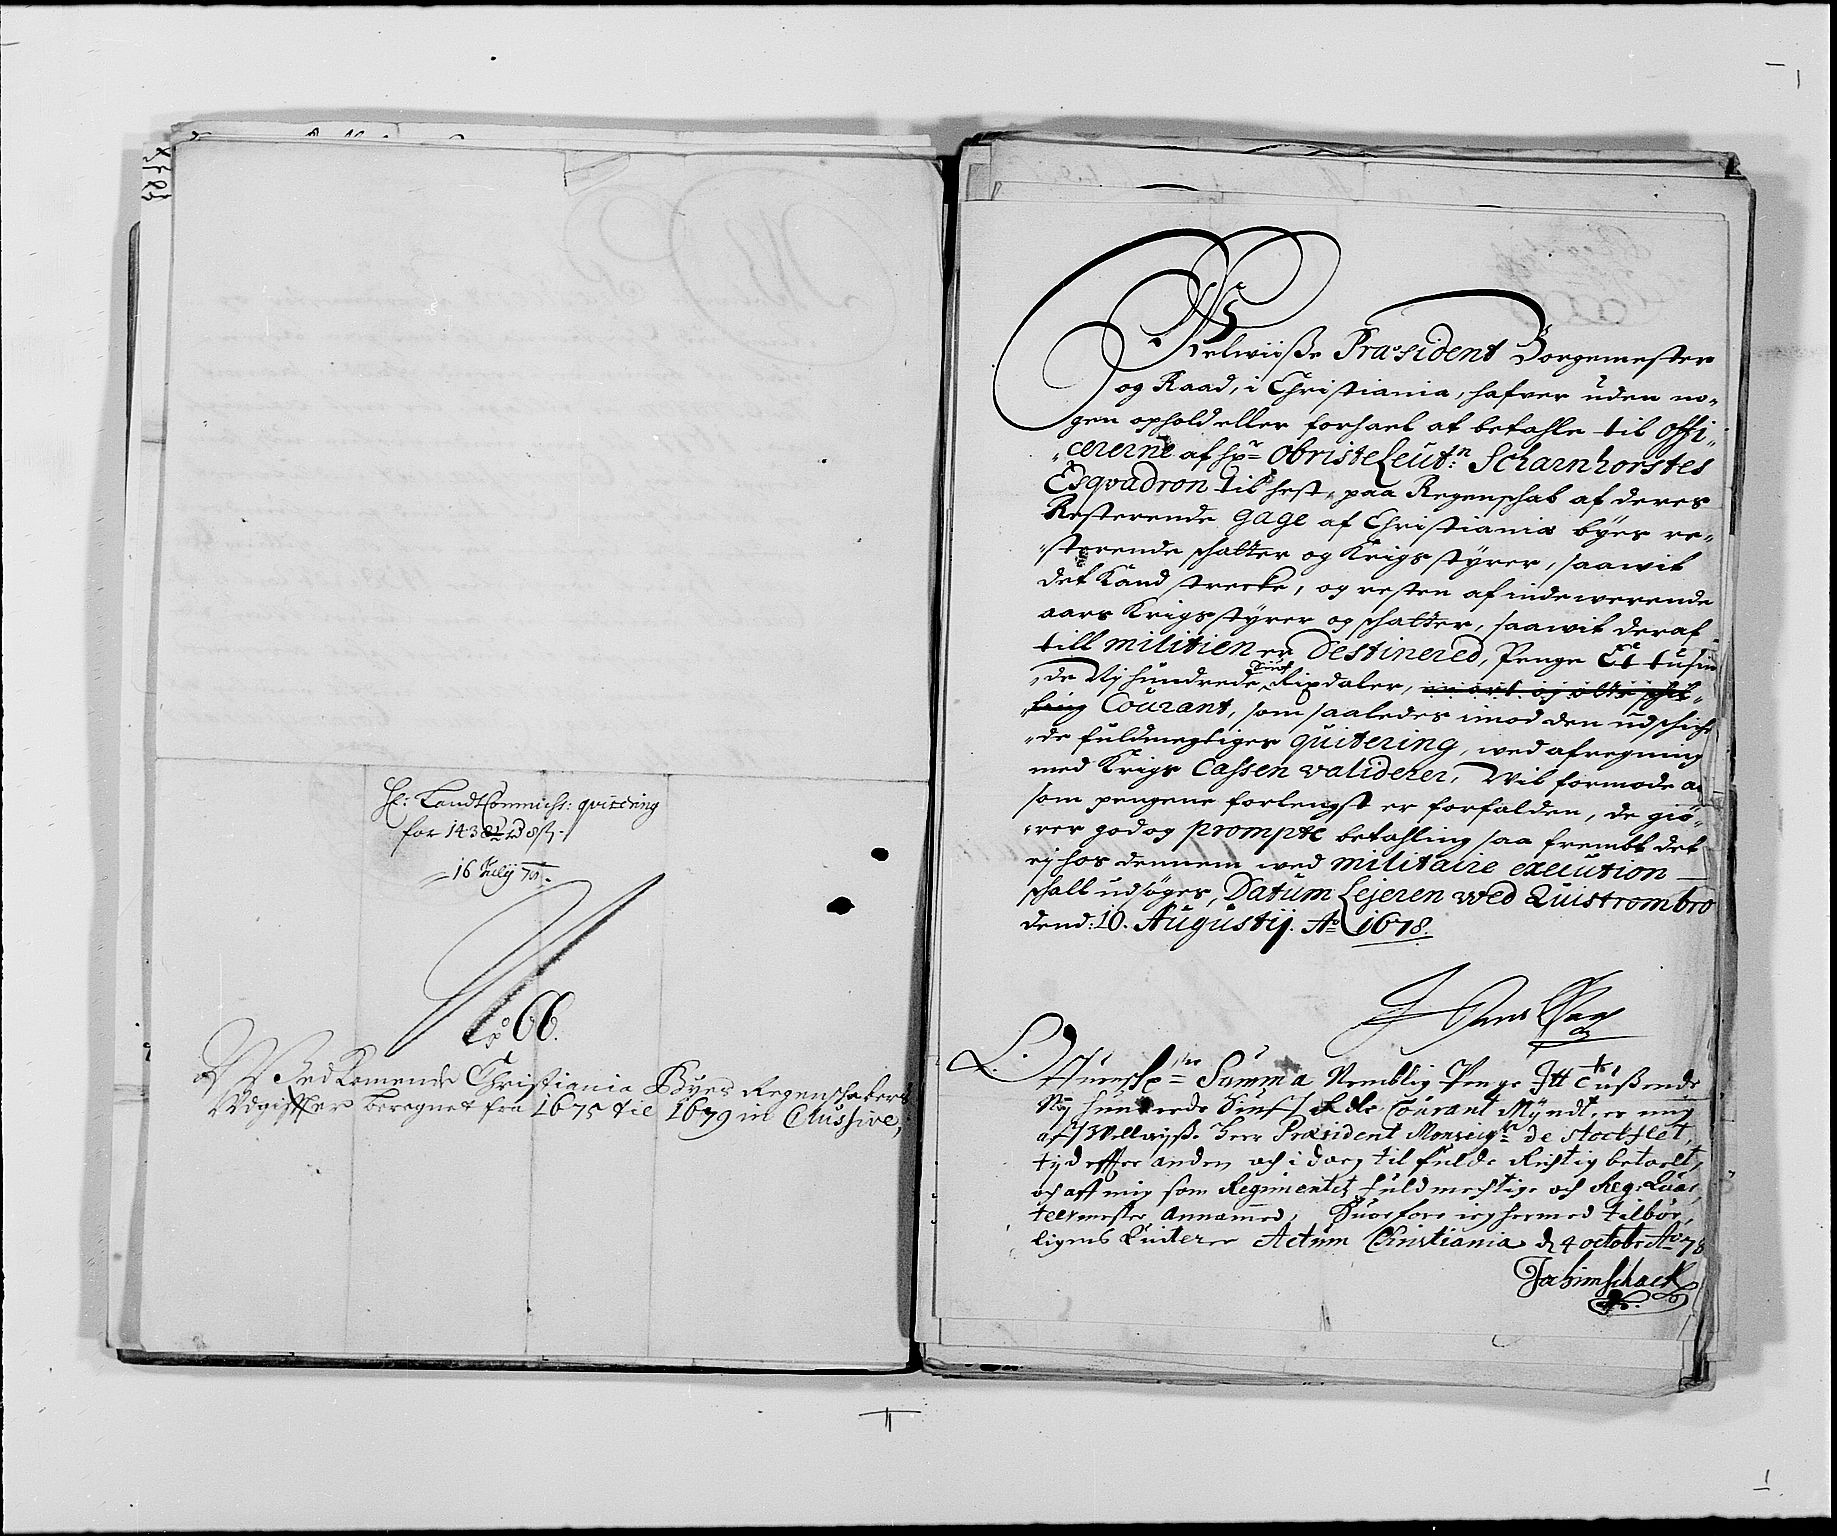 H: Landt Commiss: qvitering
for 1438½ rd 8 sz.
16 July 79.
No 66.
Wedkomende Christiania Byes Regenschabers
Udgiffter beregnet fra 1675 til 1679 in Clussive,
Welwiisze Præsident Borgemester
og Raad, i Christiania, hafver uden no-
gen ophold eller forhael at betahle til Offi-
cererne af Hr Obriste Leutn: Scharnhorstes
Esqvadron til hest, paa Regenschab af deres
Resterende gage af Christiania byes re-
sterende schatter og Krigs styrer, saawit
det kand strecke, og resten af indewerende
aars Krigs styrer og schatter, saawit deraf
till militien er Destinered, Penge Et tusin-
de Nj hundrede Rixdaler, en ort og otte schil-
ling Courant, som saaledes imod den udschich-
de fuldmegtiges quitering, wed afregning
med Krigs Cassen validerer, Vil formode at
som pengene forlengst er forfalden, de giö-
rer god og prompte betahling saa frembt det
ej hos dennem wed militaire execution
schall udsöges, Datum Lejeren wed Quistrombro
dend: 10. Augustij. Ao 1678.
Summa Nemblig Penge Itt tußende
Nÿ hundrede Courant Mÿndt, er mig
aff Wellwijß. Herr Præsident Monseigr de Stockflet,
tid effter anden och i dag til fulde Rictig betaelt,
och aff mig som Regimentet fuldmectige och Reg: Quar
teermester annamed, Huorfore ieg hermed tilbör,
ligens Quiterer Actum Christiania d 4 octobr Ao 78
Jochim Schack